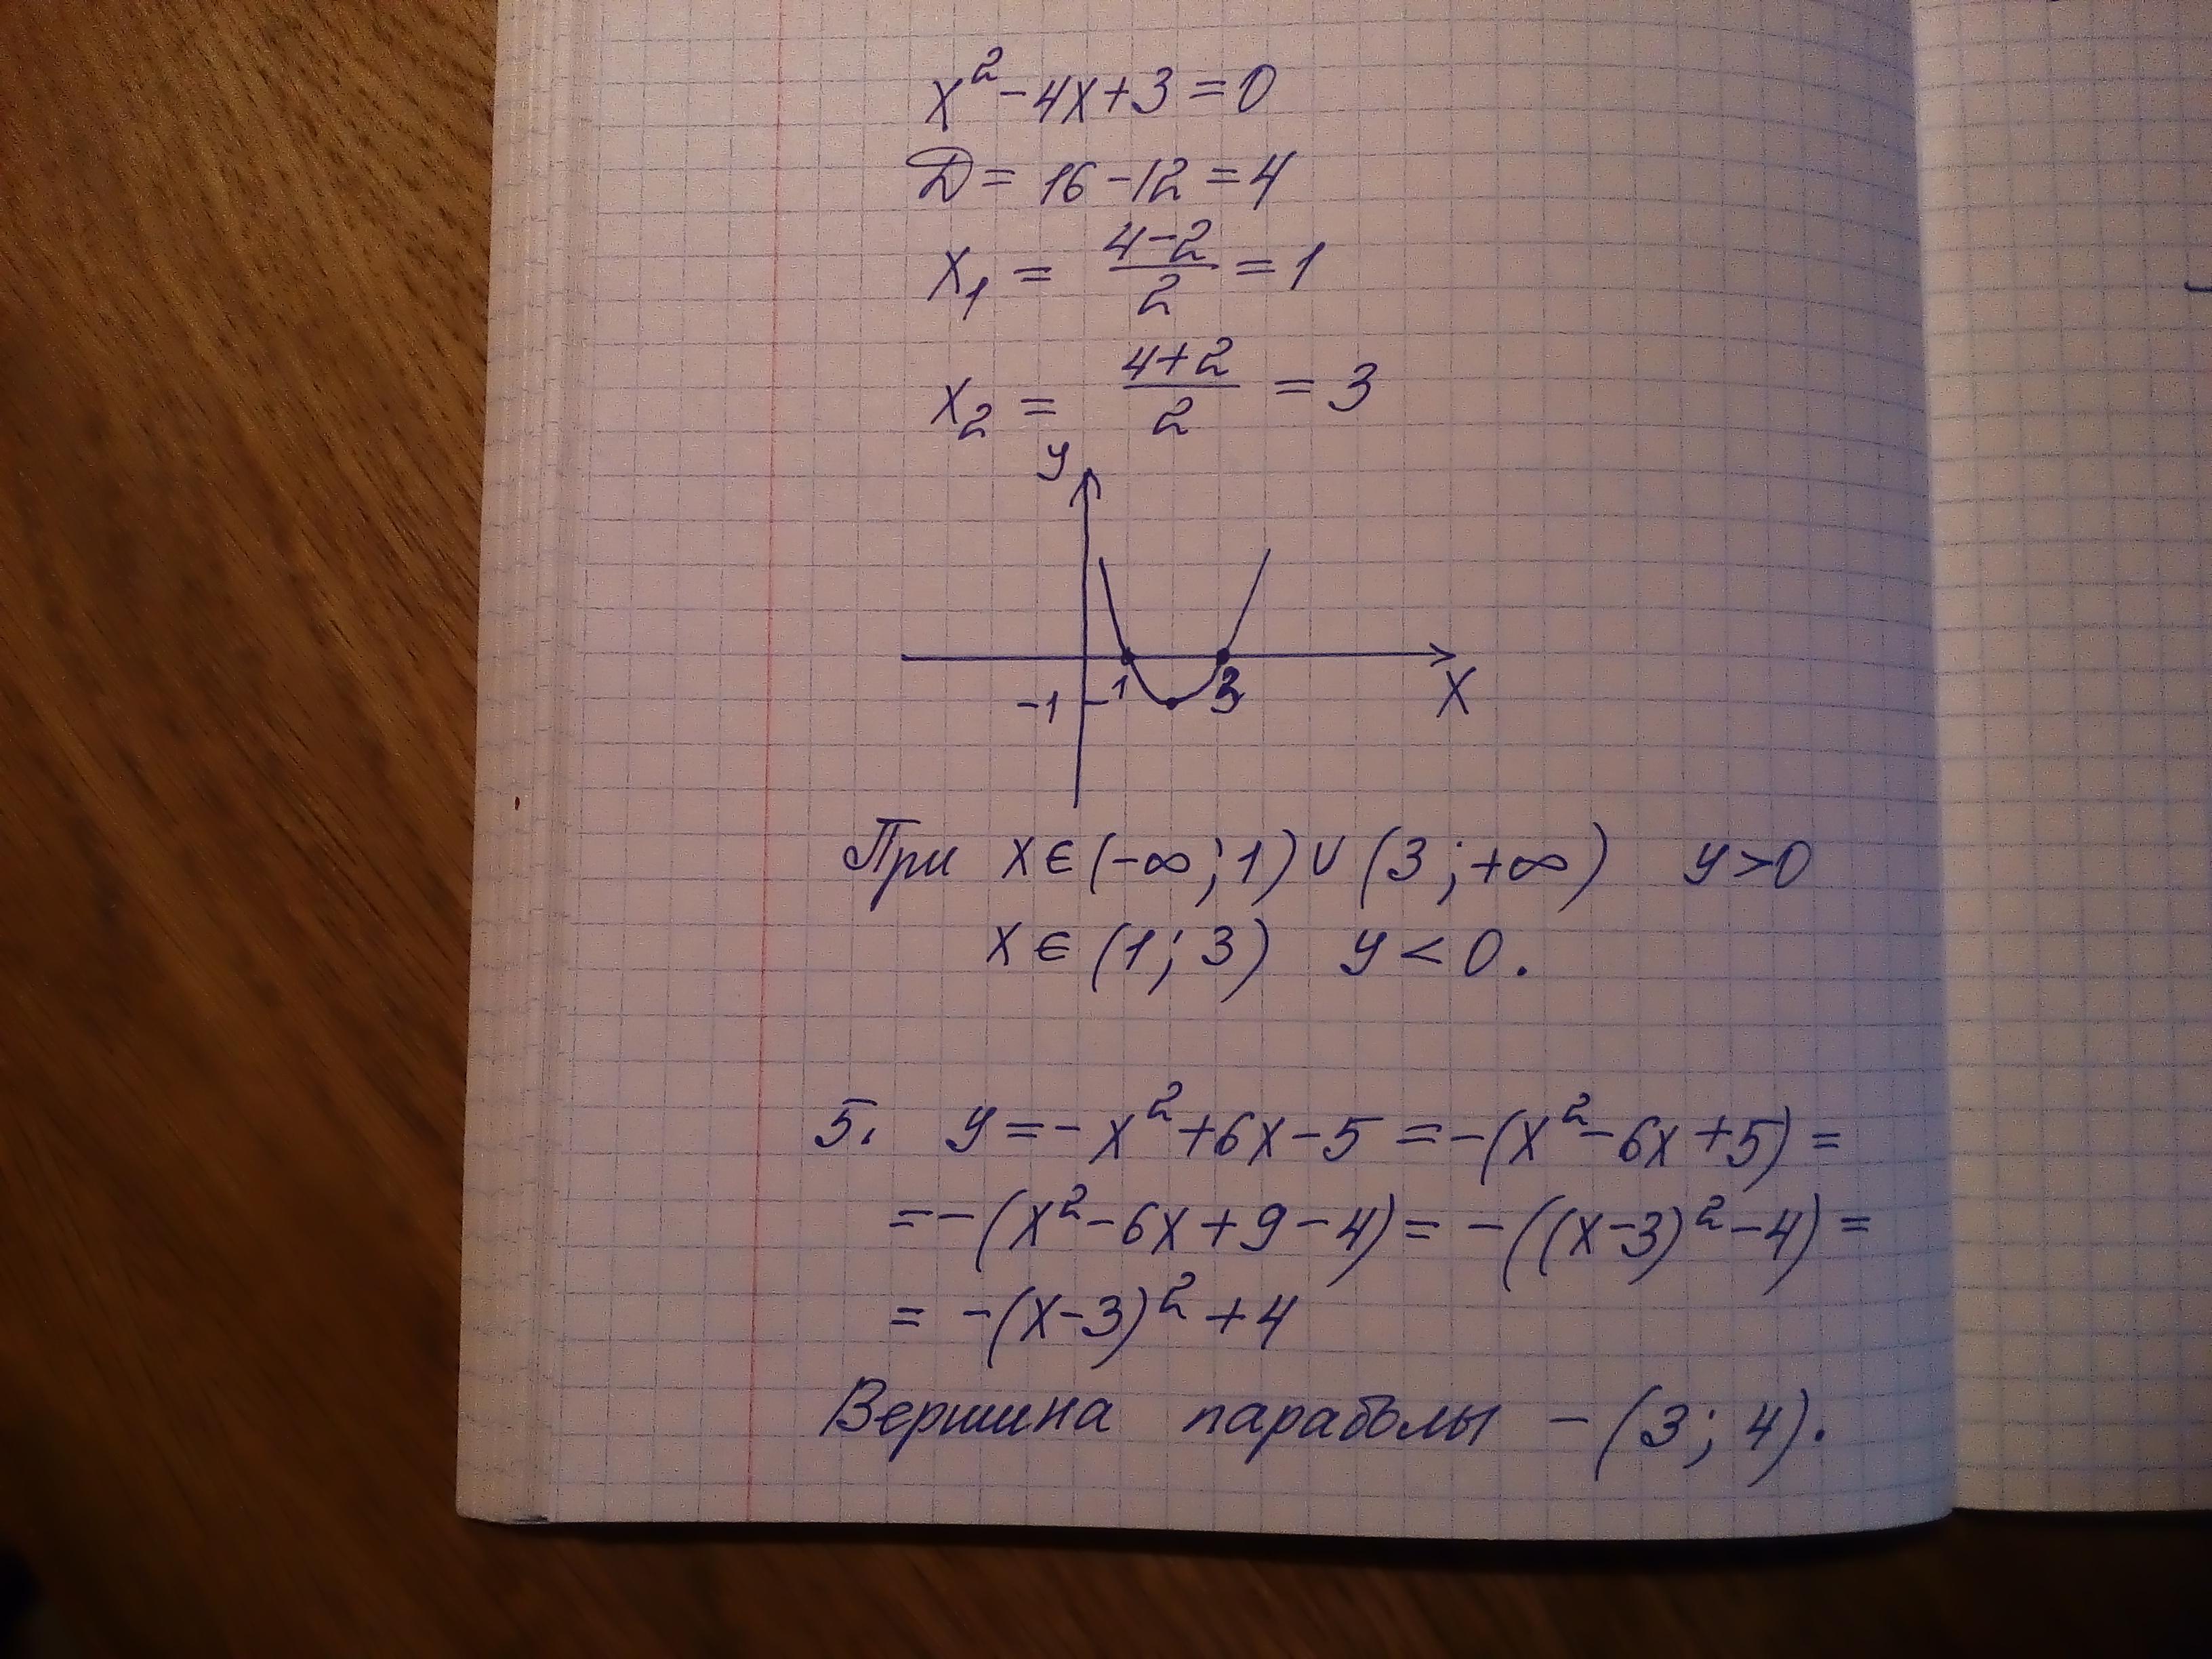 x²-4x+3=0
D=16-12=4
x₁ = (4-2)/2 = 1
x₂ = (4+2)/2 = 3
y
1 3
-1
x
При x∈(-∞;1)∪(3;+∞) y>0
x∈(1;3) y<0.
5. y=-x²+6x-5=-(x²-6x+5)=
=-(x²-6x+9-4)=-((x-3)²-4)=
= -(x-3)²+4
Вершина параболы - (3; 4).